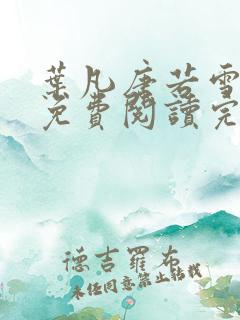 葉凡唐若雪
免費閱讀完
德吉羅布
未經同意禁止轉載